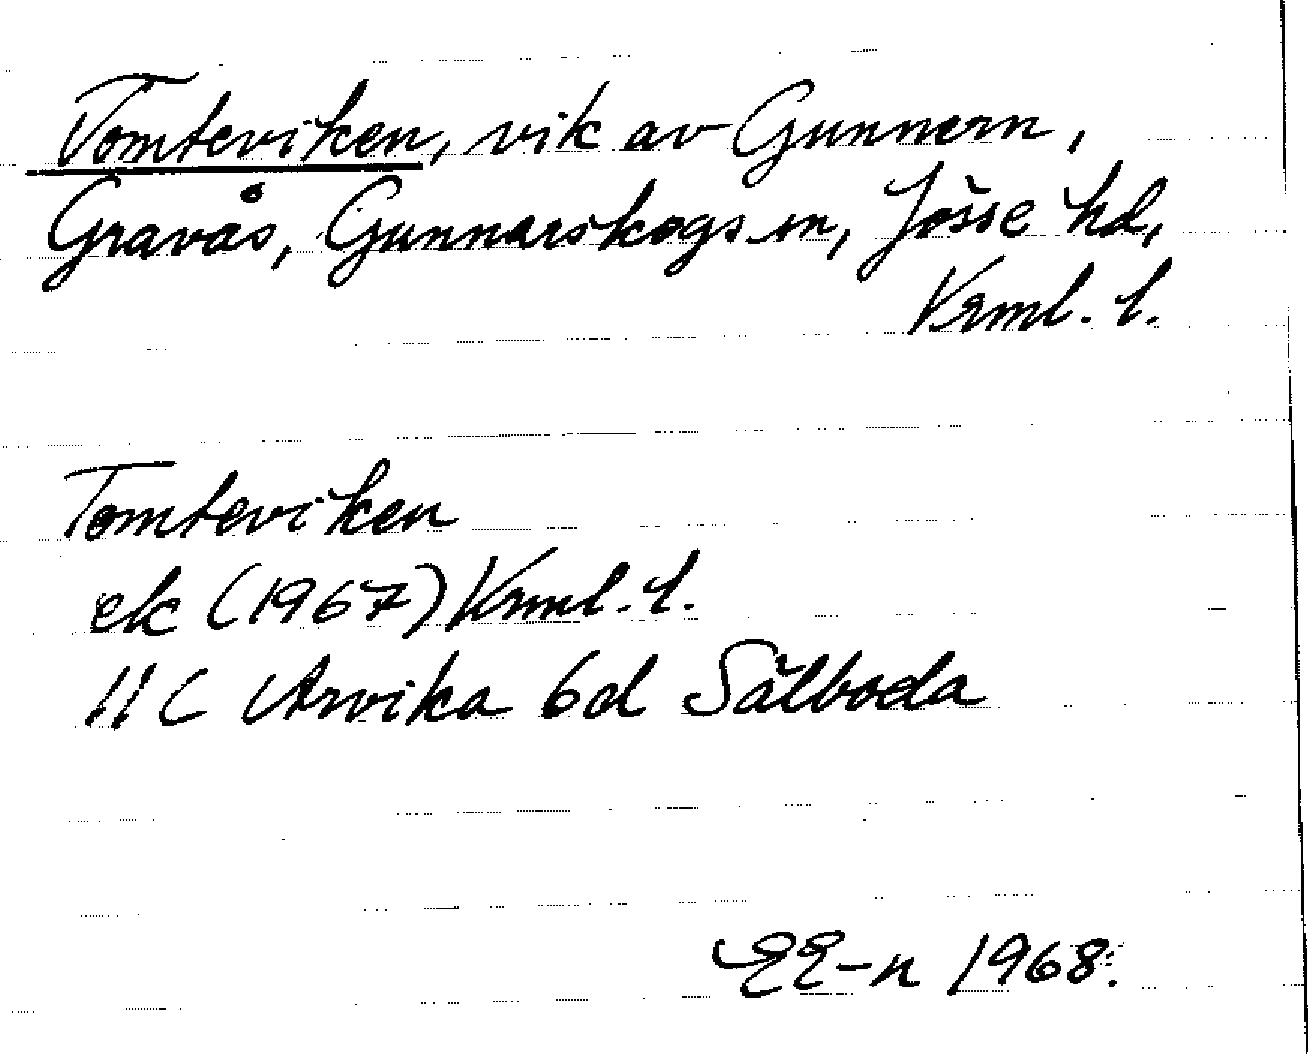 Tomteviken, vik av Gunnern,
Gravås, Gunnarskogs sn, Jösse hd,
Vrml. l.
Tomteviken
ek (1967) Vrml. l.
11 C Arvika 6d Sälboda
EE-n 1968.